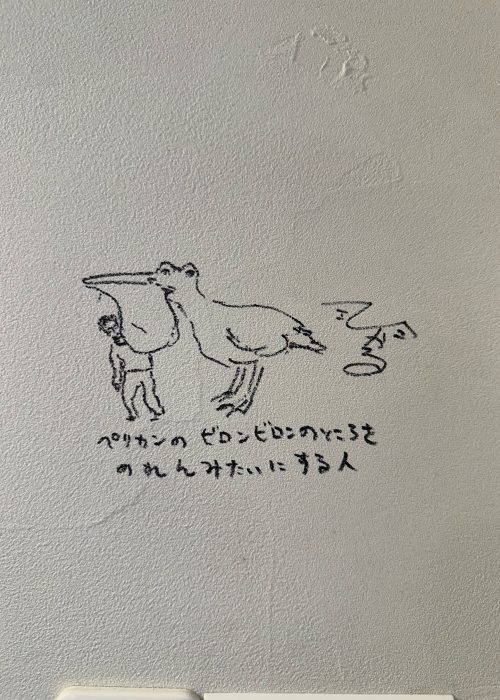 ペリカンの ビロンビロンのところを
のれんみたいにする人